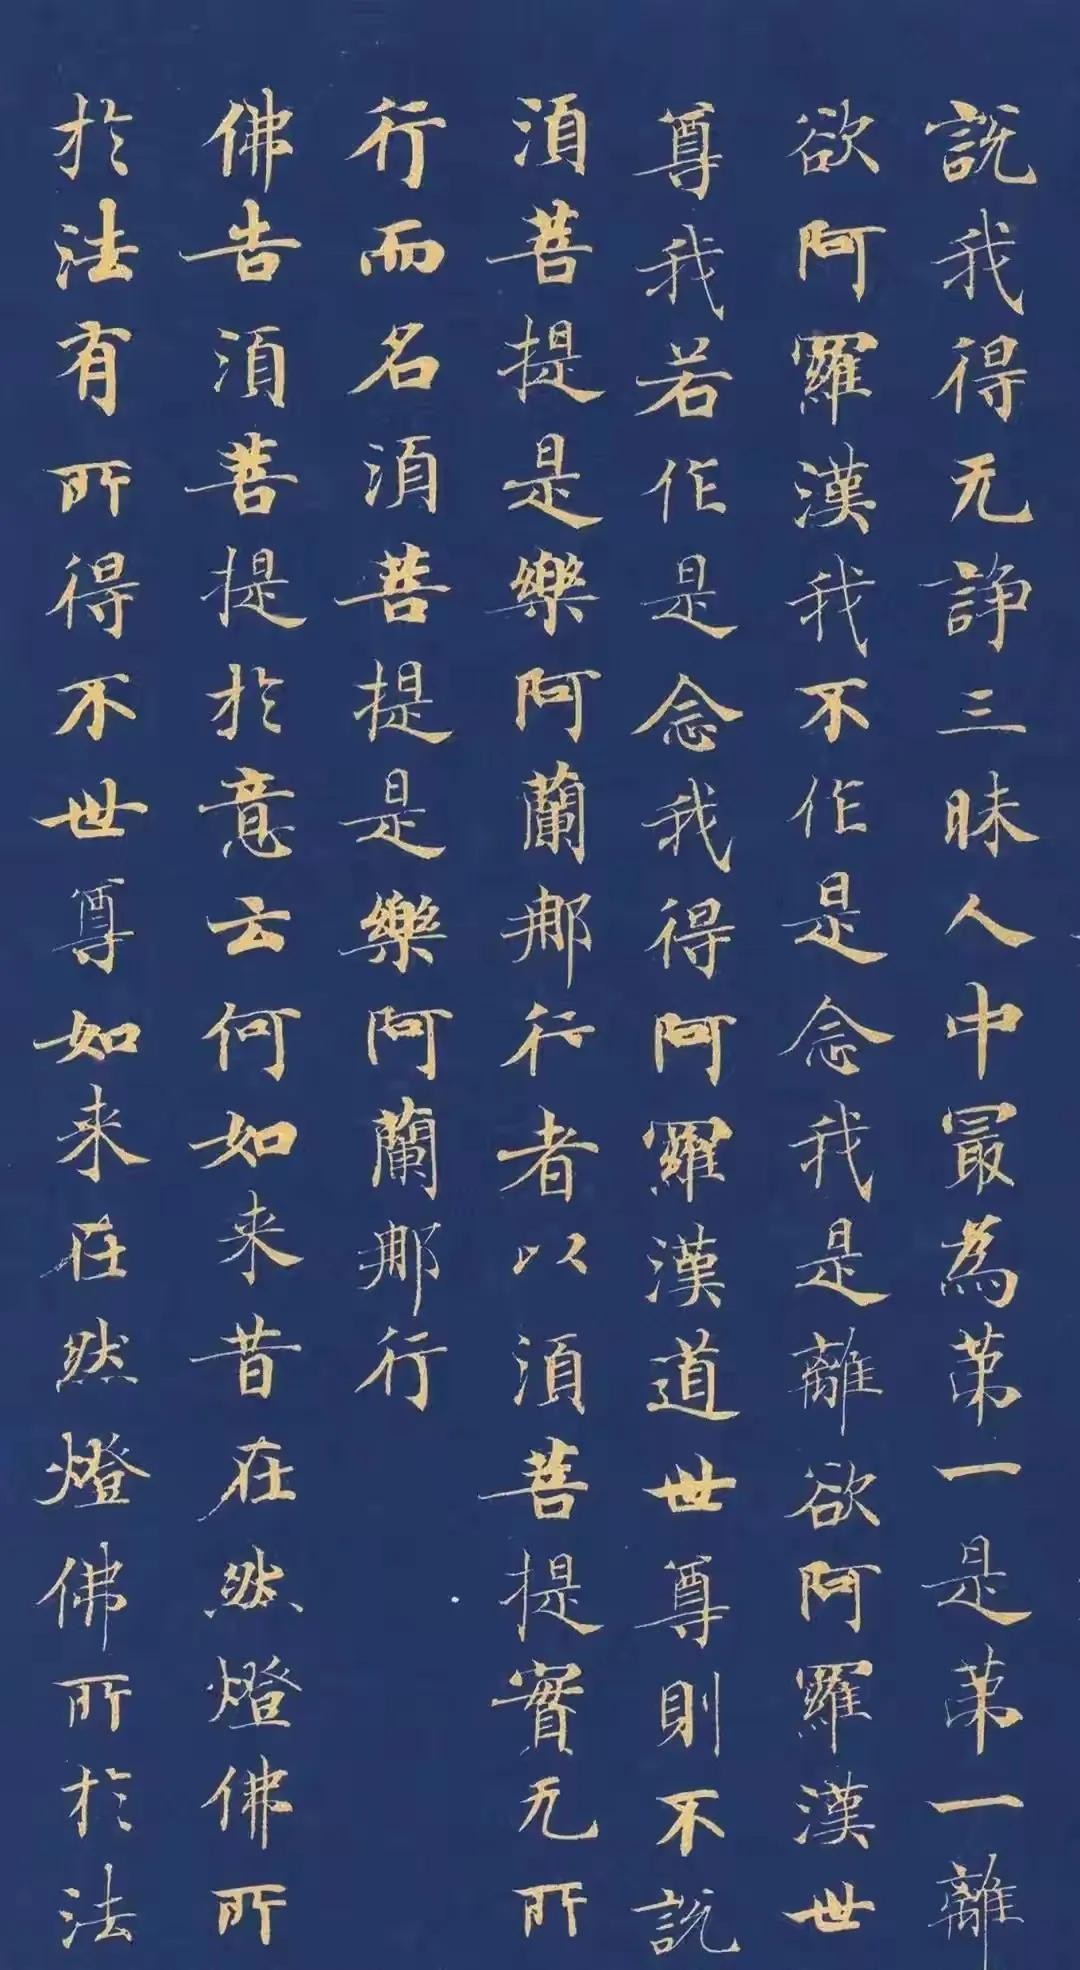 說我得无諍三昧人中最為苐一是苐一離
欲阿羅漢我不作是念我是離欲阿羅漢世
尊我若作是念我得阿羅漢道世尊則不說
湏菩提是樂阿蘭那行者以湏菩提實无所
行而名湏菩提是樂阿蘭那行
佛告湏菩提於意云何如来昔在然燈佛所
於法有所得不世尊如来在然燈佛所於法